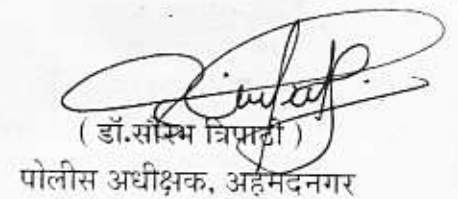 ( डॉ.सौरभ त्रिपाठी )
पोलीस अधीक्षक, अहमदनगर